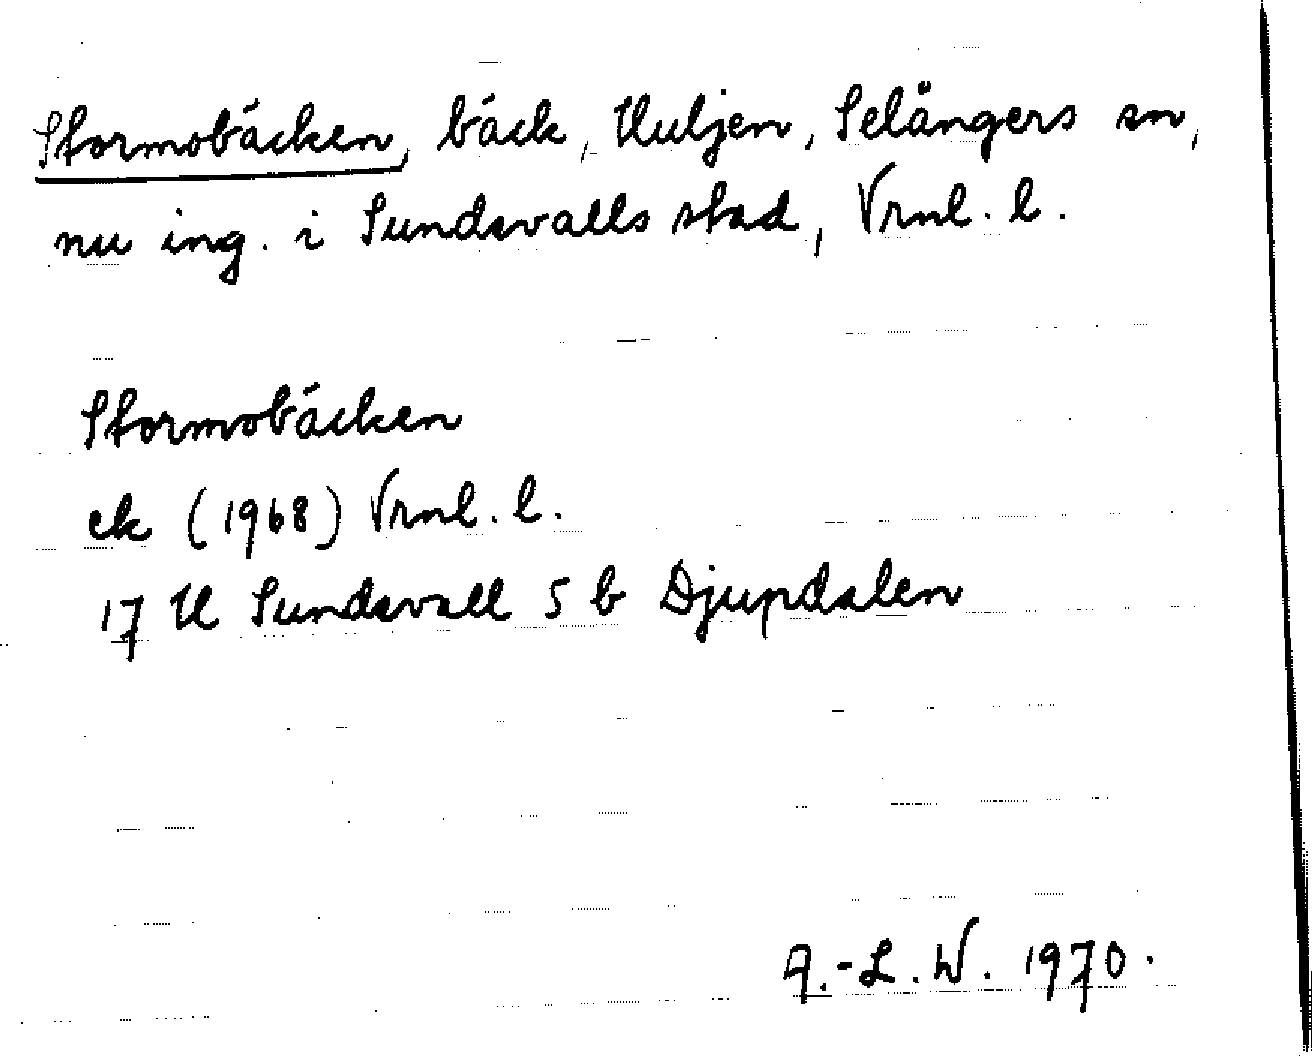 Stormobäcken, bäck, Huljen, Selångers sn,
nu ing. i Sundsvalls stad, Vrnl. l.
Stormobäcken
ek (1968) Vrnl. l.
17 H Sundsvall 5 b Djupdalen
A.-L. W. 1970.